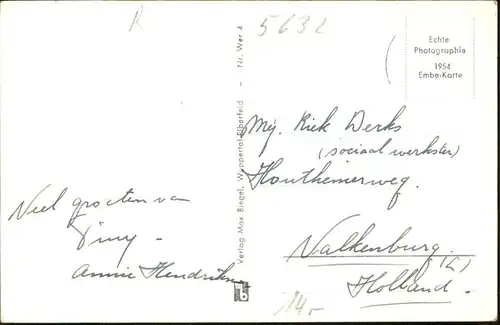 R
5632
Echte
Photographie
1954
Embe-Karte
Verlag Max Biegel, Wuppertal-Elberfeld - Nr. Wer 4
Mej. Riek Derks
(sociaal werkster)
Houthemerweg.
Valkenburg.
(L)
Holland.
Veel groeten van
Tiny -
Annie Hendriks
14,-